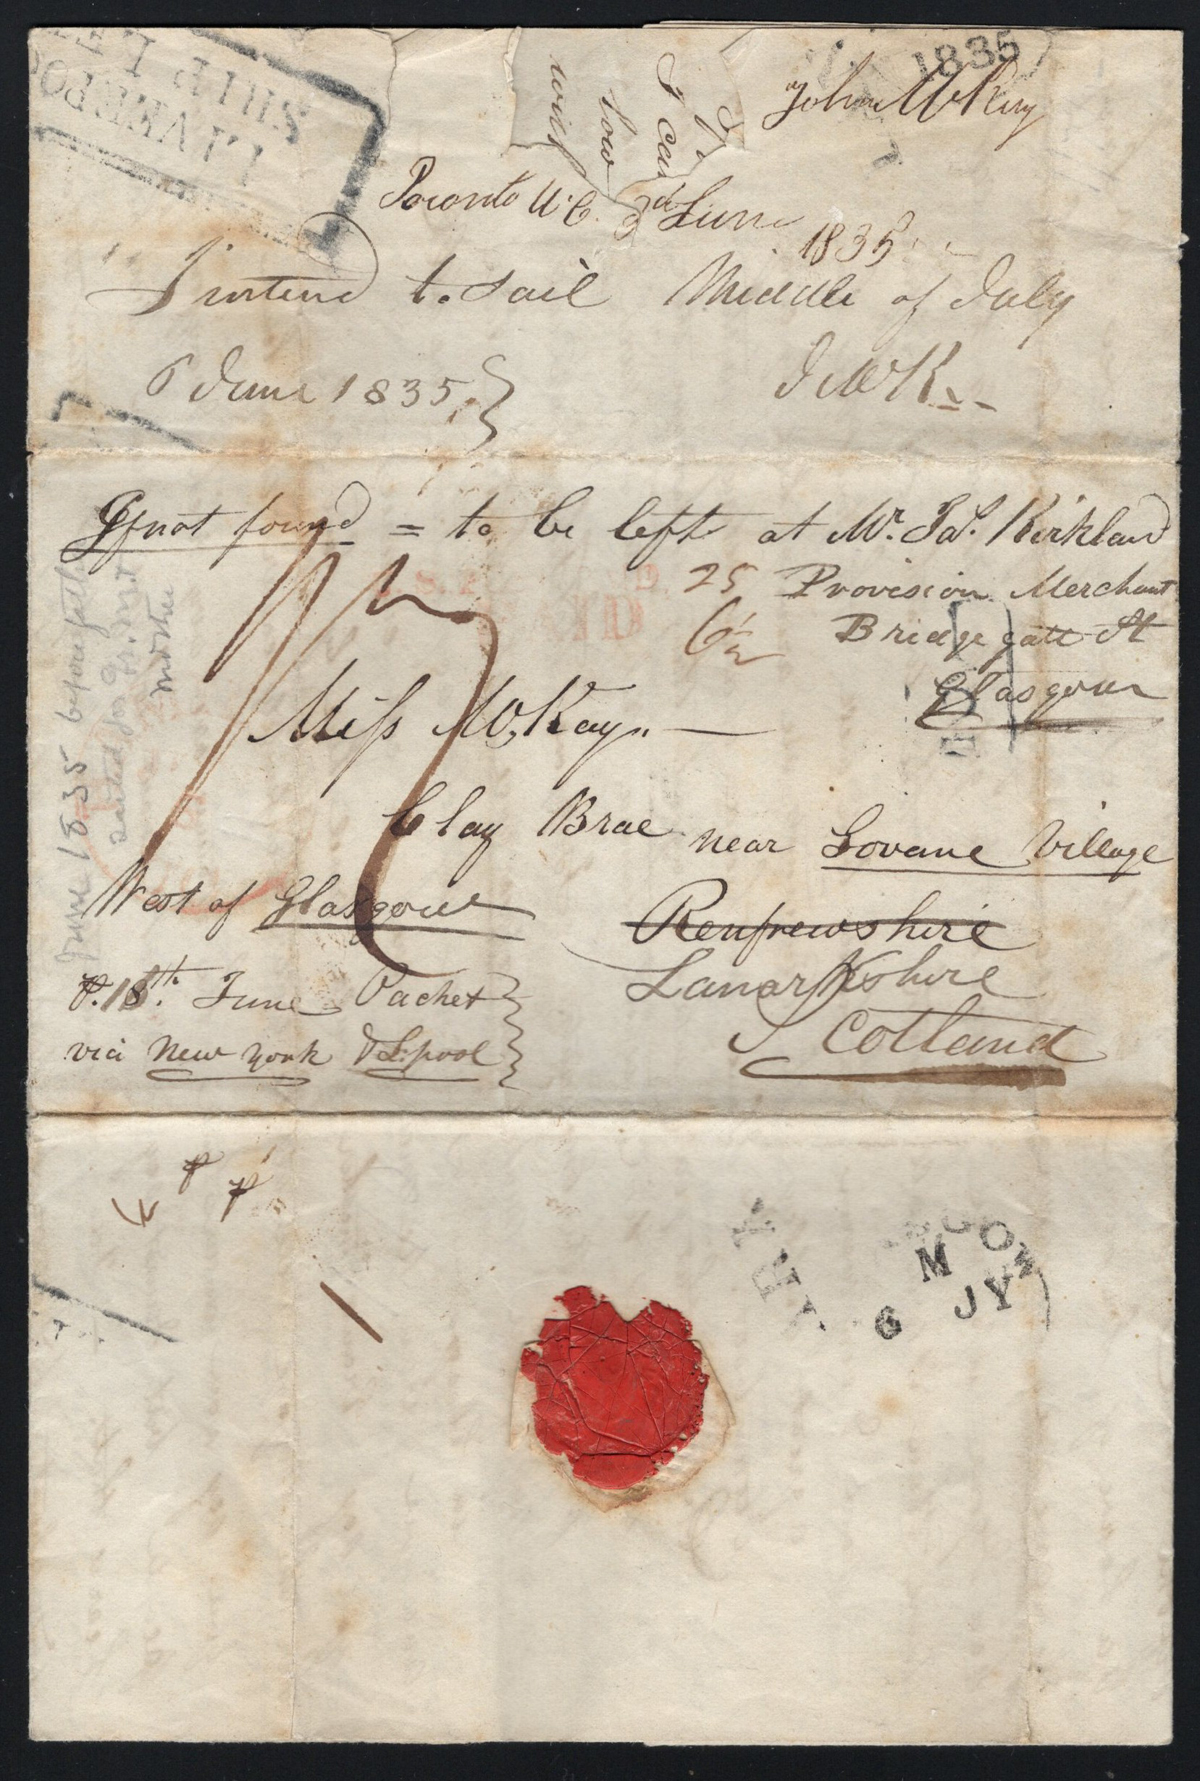 LIVERPOO
SHIP LE
1835
John McKay
Toronto U.C. 3d June
1835
I intend to sail Middle of July
6 June 1835
J McK
If not found = to be left at Mr. Jas. Kirkland
25 Provision Merchant
6½ Bridge gate St
Glasgow
Miss McKay
Clay Brae near Govane Village
West of Glasgow
Renfrewshire
Lanarkshire
Scotland
P. 18th June Packet
via New York & L.pool
June 1835 before
mother
I can
how
SGOW
M
6 JY